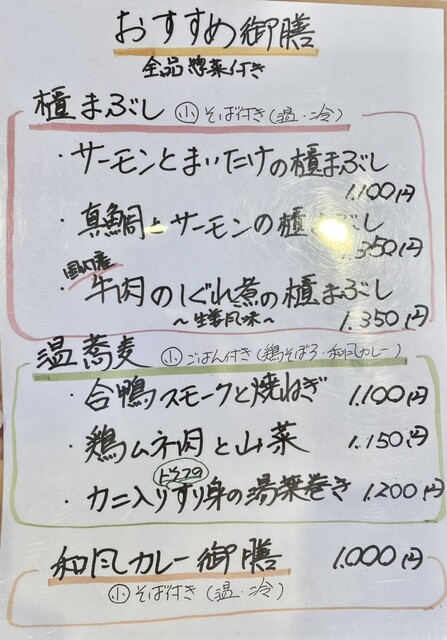 おすすめ御膳
全品惣菜付き
櫃まぶし ㊙小 そば付き(温・冷)
・サーモンとまいたけの櫃まぶし
1.100円
・真鯛とサーモンの櫃まぶし
1.350円
国内産
・牛肉のしぐれ煮の櫃まぶし
〜生姜風味〜 1.350円
温蕎麦 小 ごはん付き(鶏そぼろ・和風カレー)
・合鴨スモークと焼ねぎ 1.100円
・鶏ムネ肉と山菜 1.150円
・カニ入りすり身の湯葉巻き 1.200円
和風カレー御膳 1.000円
小 そば付き(温・冷)